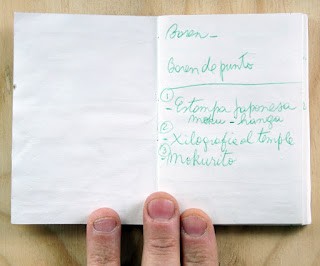 Boren -
Boren de punto
①
- Estampa japonesa
moku-hanga
②
- Xilografía al temple
③
- Mokurito